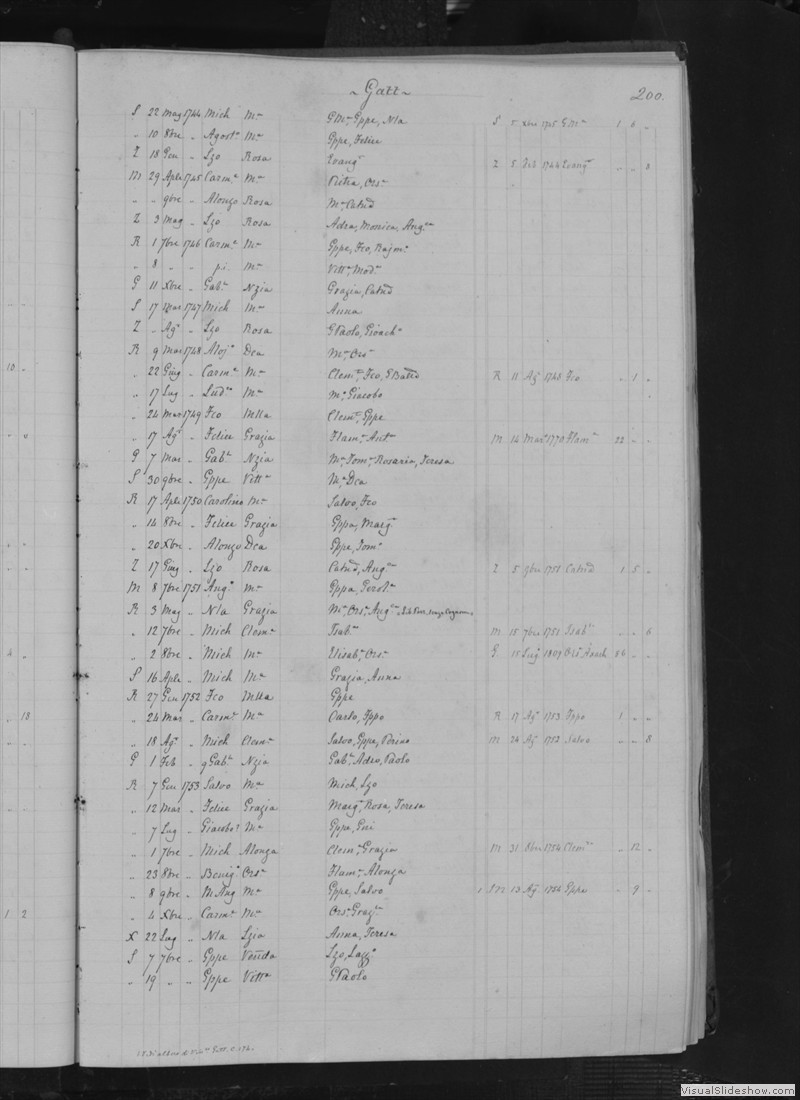 ~ Gatt ~ 200.
S 22 Mag 1744 Mich Mᵃ GMᵃ, Gppe, Nla S 5 Xbre 1745 GMᵃ 1 6 „
„ 10 8bre „ Agostᵒ Mᵃ Gppe, Felice
Z 18 Gen „ Lzo Rosa Evangᵗᵃ Z 5 Feb 1744 Evangᵗᵃ „ „ 8
M 29 Aple 1745 Carmᵉ Mᵃ Pietra, Orsᵃ
„ „ 9bre „ Alonzo Rosa Mᵃ Catnd
Z 3 Mag „ Lzo Rosa Adea, Monica, Angᵃ
R 1 7bre 1746 Carmᵉ Mᵃ Gppe, Fco, Rajmᵒ
„ 8 „ „ pi. Mᵃ Vittᵃ, Modᵃ
G 11 Xbre „ Gabᵉ Nzia Grazia, Catnd
S 17 Mar 1747 Mich Mᵃ Anna
Z „ Agᵒ „ Lzo Rosa GPaolo, Gioachᵒ
R 9 Mar 1748 Alojᵒ Dca Mᵃ, Orsᵃ
„ 22 Giug „ Carmᵉ Mᵃ Clemᵗᵉ, Fco, GBatta R 11 Agᵒ 1748 Fco „ 1 „
„ 17 Lug „ Ludᵒ Mᵃ Mᵃ, Giacoba
„ 24 Mar 1749 Fco Mtta Clemᵃ, Gppe
„ 17 Agᵒ „ Felice Grazia Flamᵃ, Antᵃ M 14 Mar 1770 Flamᵃ 22 „ „
G 7 Mar „ Gabᵉ Nzia Mᵃ, Tomᵃ, Rosaria, Teresa
S 30 9bre „ Gppe Vittᵃ Mᵃ, Dca
R 17 Aple 1750 Carolino Mᵃ Salvo, Fco
„ 14 8bre „ Felice Grazia Gppa, Margᵗᵃ
„ 20 Xbre „ Alonzo Dca Gppe, Tomᵒ
Z 17 Giug „ Lzo Rosa Catnd, Angᵃ Z 5 9bre 1752 Catnd 1 5 „
M 8 7bre 1751 Angᵒ Mᵃ Gppa, Gerolᵃ
R 3 Mag „ Nla Grazia Mᵃ, Orsᵃ, Angᵃ
„ 12 7bre „ Mich Clemᵃ Isabᵃ M 15 7bre 1751 Isabᵃ „ „ 6
„ 2 8bre „ Mich Mᵃ Elisabᵃ, Orsᵃ G 15 Lug 1807 86 „ „
S 16 Aple „ Mich Mᵃ Grazia, Anna
R 27 Gen 1752 Fco Mtta Gppe
„ 24 Mar „ Carmᵉ Mᵃ Carlo, Fppo R 17 Agᵒ 1753 Fppo 1 „ „
„ 18 Agᵒ „ Mich Clemᵃ Salvo, Gppe, Perino M 24 Agᵒ 1752 Salvo „ „ 8
G 1 Feb „ q Gabᵉ Nzia Gabᵉ, Adeo, Paolo
R 7 Gen 1753 Salvo Mᵃ Mich, Lzo
„ 12 Mar „ Felice Grazia Margᵗᵃ, Rosa, Teresa
„ 7 Lug „ Giacobo Mᵃ Gppa, Geri
„ 1 7bre „ Mich Alonza Clemᵃ, Grazia M 31 8bre 1754 Clemᵃ „ 12 „
„ 23 8bre „ Benigᵒ Orsᵃ Flamᵃ, Alonza
„ 8 9bre „ MAng Mᵃ Gppe, Salvo SM 13 Agᵒ 1754 Gppe „ 9 „
„ 4 Xbre „ Carmᵉ Mᵃ Orsᵃ, Grazᵃ
X 22 Lug „ Nla Lzia Anna, Teresa
S 7 7bre „ Gppe Venda Lzo, Lazzᵒ
„ 19 „ „ Gppe Vittᵃ GPaolo
10
18
1 2
VisualSlideshow.com